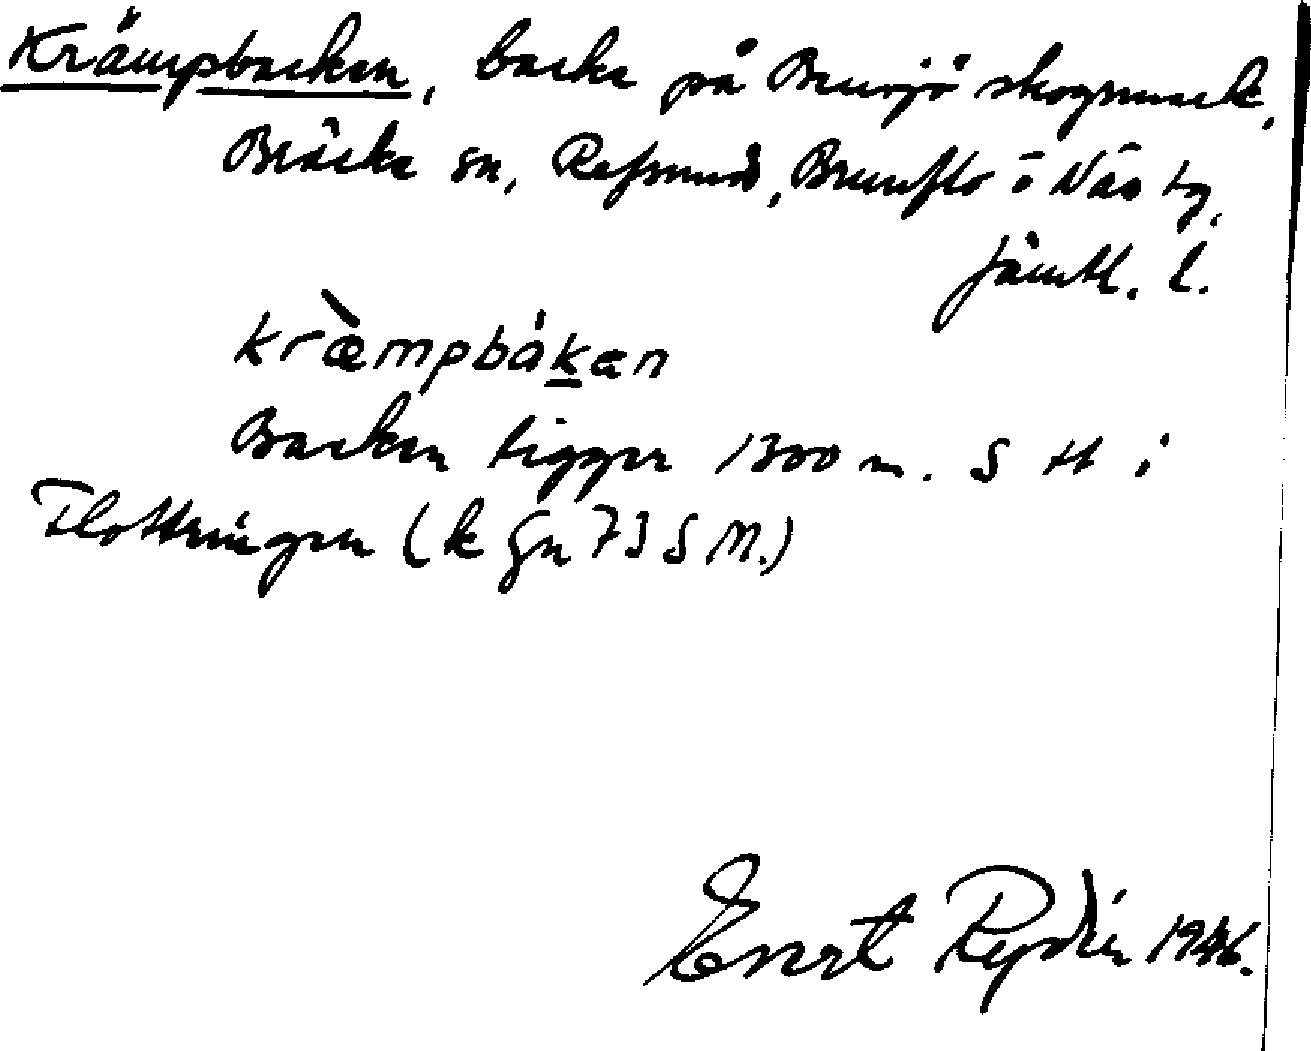 Krämpbacken, backe på Bensjö skogsmark,
Bräcke sn, Refsund, Brunflo o Näs tg,
Jämtl. l.
kræ̀mpbákæn
Backen ligger 1300 m. S tt i
Flottningen (k Gn 73 S M.)
Evert Rydén 1946.